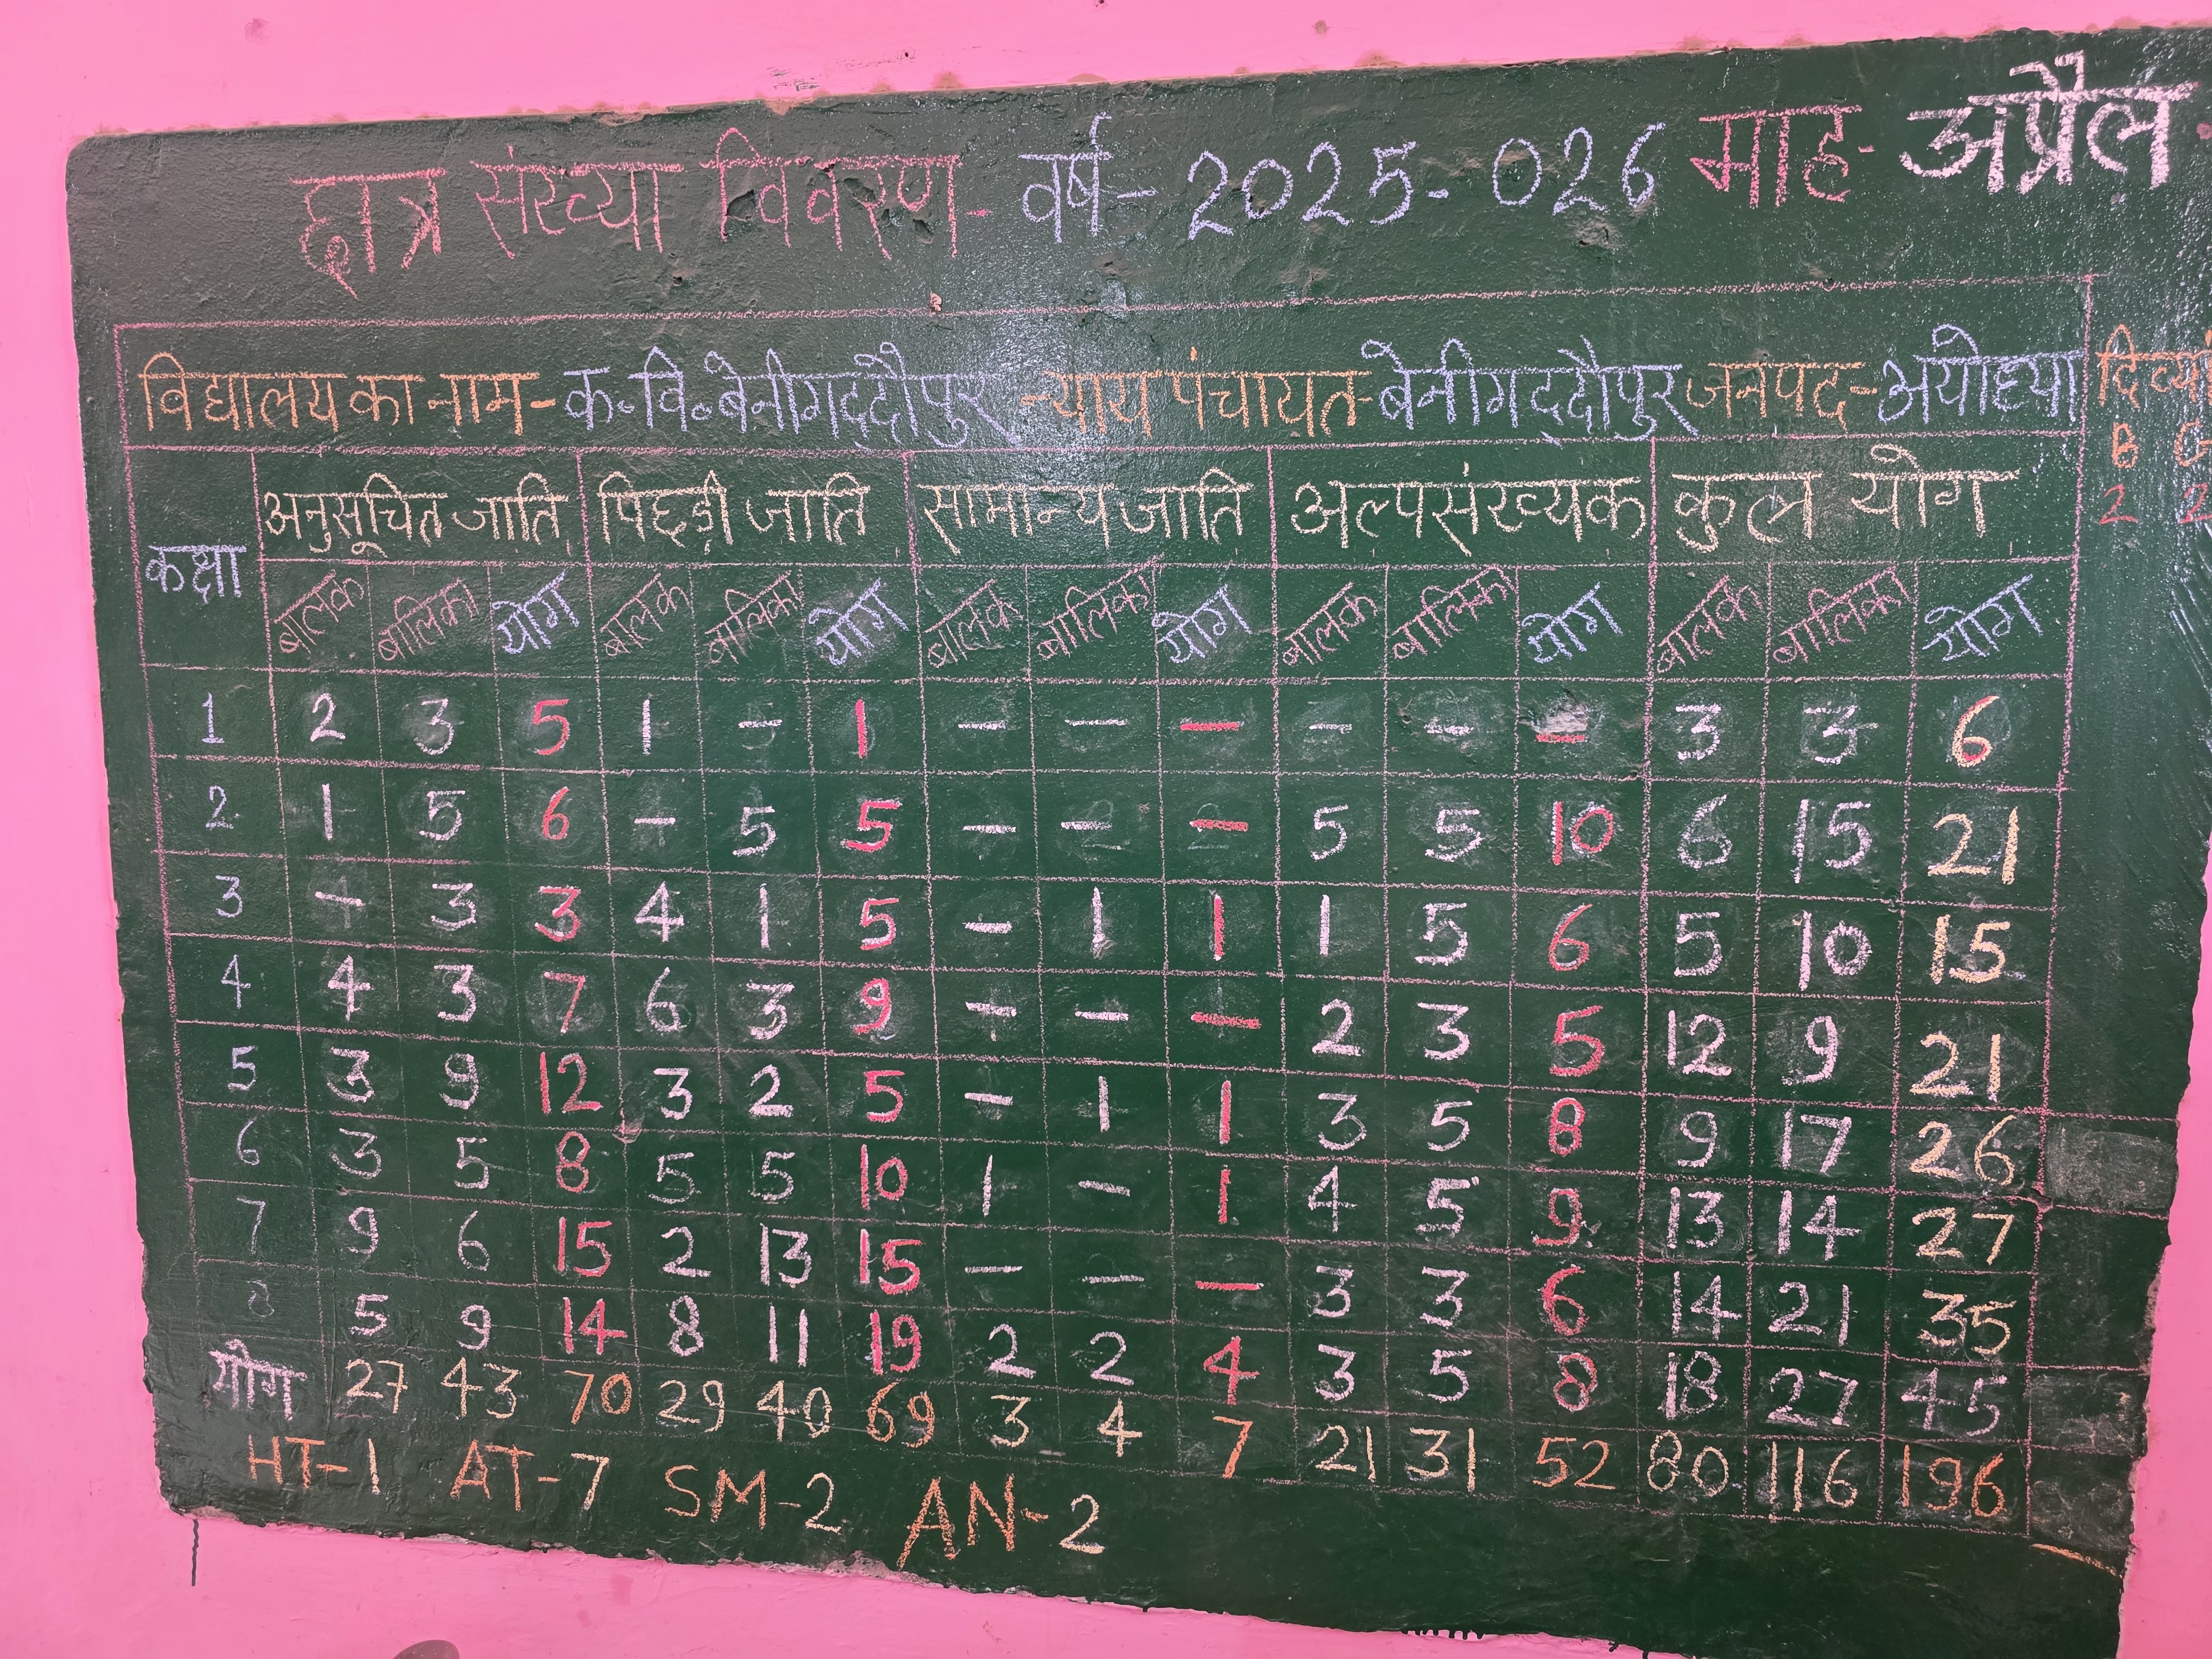 छात्र संख्या विवरण- वर्ष- 2025-026 माह- अप्रैल
विद्यालय का नाम- क॰वि॰बेनीगद्दौपुर न्याय पंचायत- बेनीगद्दौपुर जनपद- अयोध्या
B
2 2
कक्षा अनुसूचित जाति पिछड़ी जाति सामान्य जाति अल्पसंख्यक कुल योग
बालक बालिका योग बालक बालिका योग बालक बालिका योग बालक बालिका योग बालक बालिका योग
1 2 3 5 1 - 1 - - - - - - 3 3 6
2 1 5 6 - 5 5 - - - 5 5 10 6 15 21
3 - 3 3 4 1 5 - 1 1 1 5 6 5 10 15
4 4 3 7 6 3 9 - - - 2 3 5 12 9 21
5 3 9 12 3 2 5 - 1 1 3 5 8 9 17 26
6 3 5 8 5 5 10 1 - 1 4 5 9 13 14 27
7 9 6 15 2 13 15 - - - 3 3 6 14 21 35
8 5 9 14 8 11 19 2 2 4 3 5 8 18 27 45
योग 27 43 70 29 40 69 3 4 7 21 31 52 80 116 196
HT-1 AT-7 SM-2 AN-2